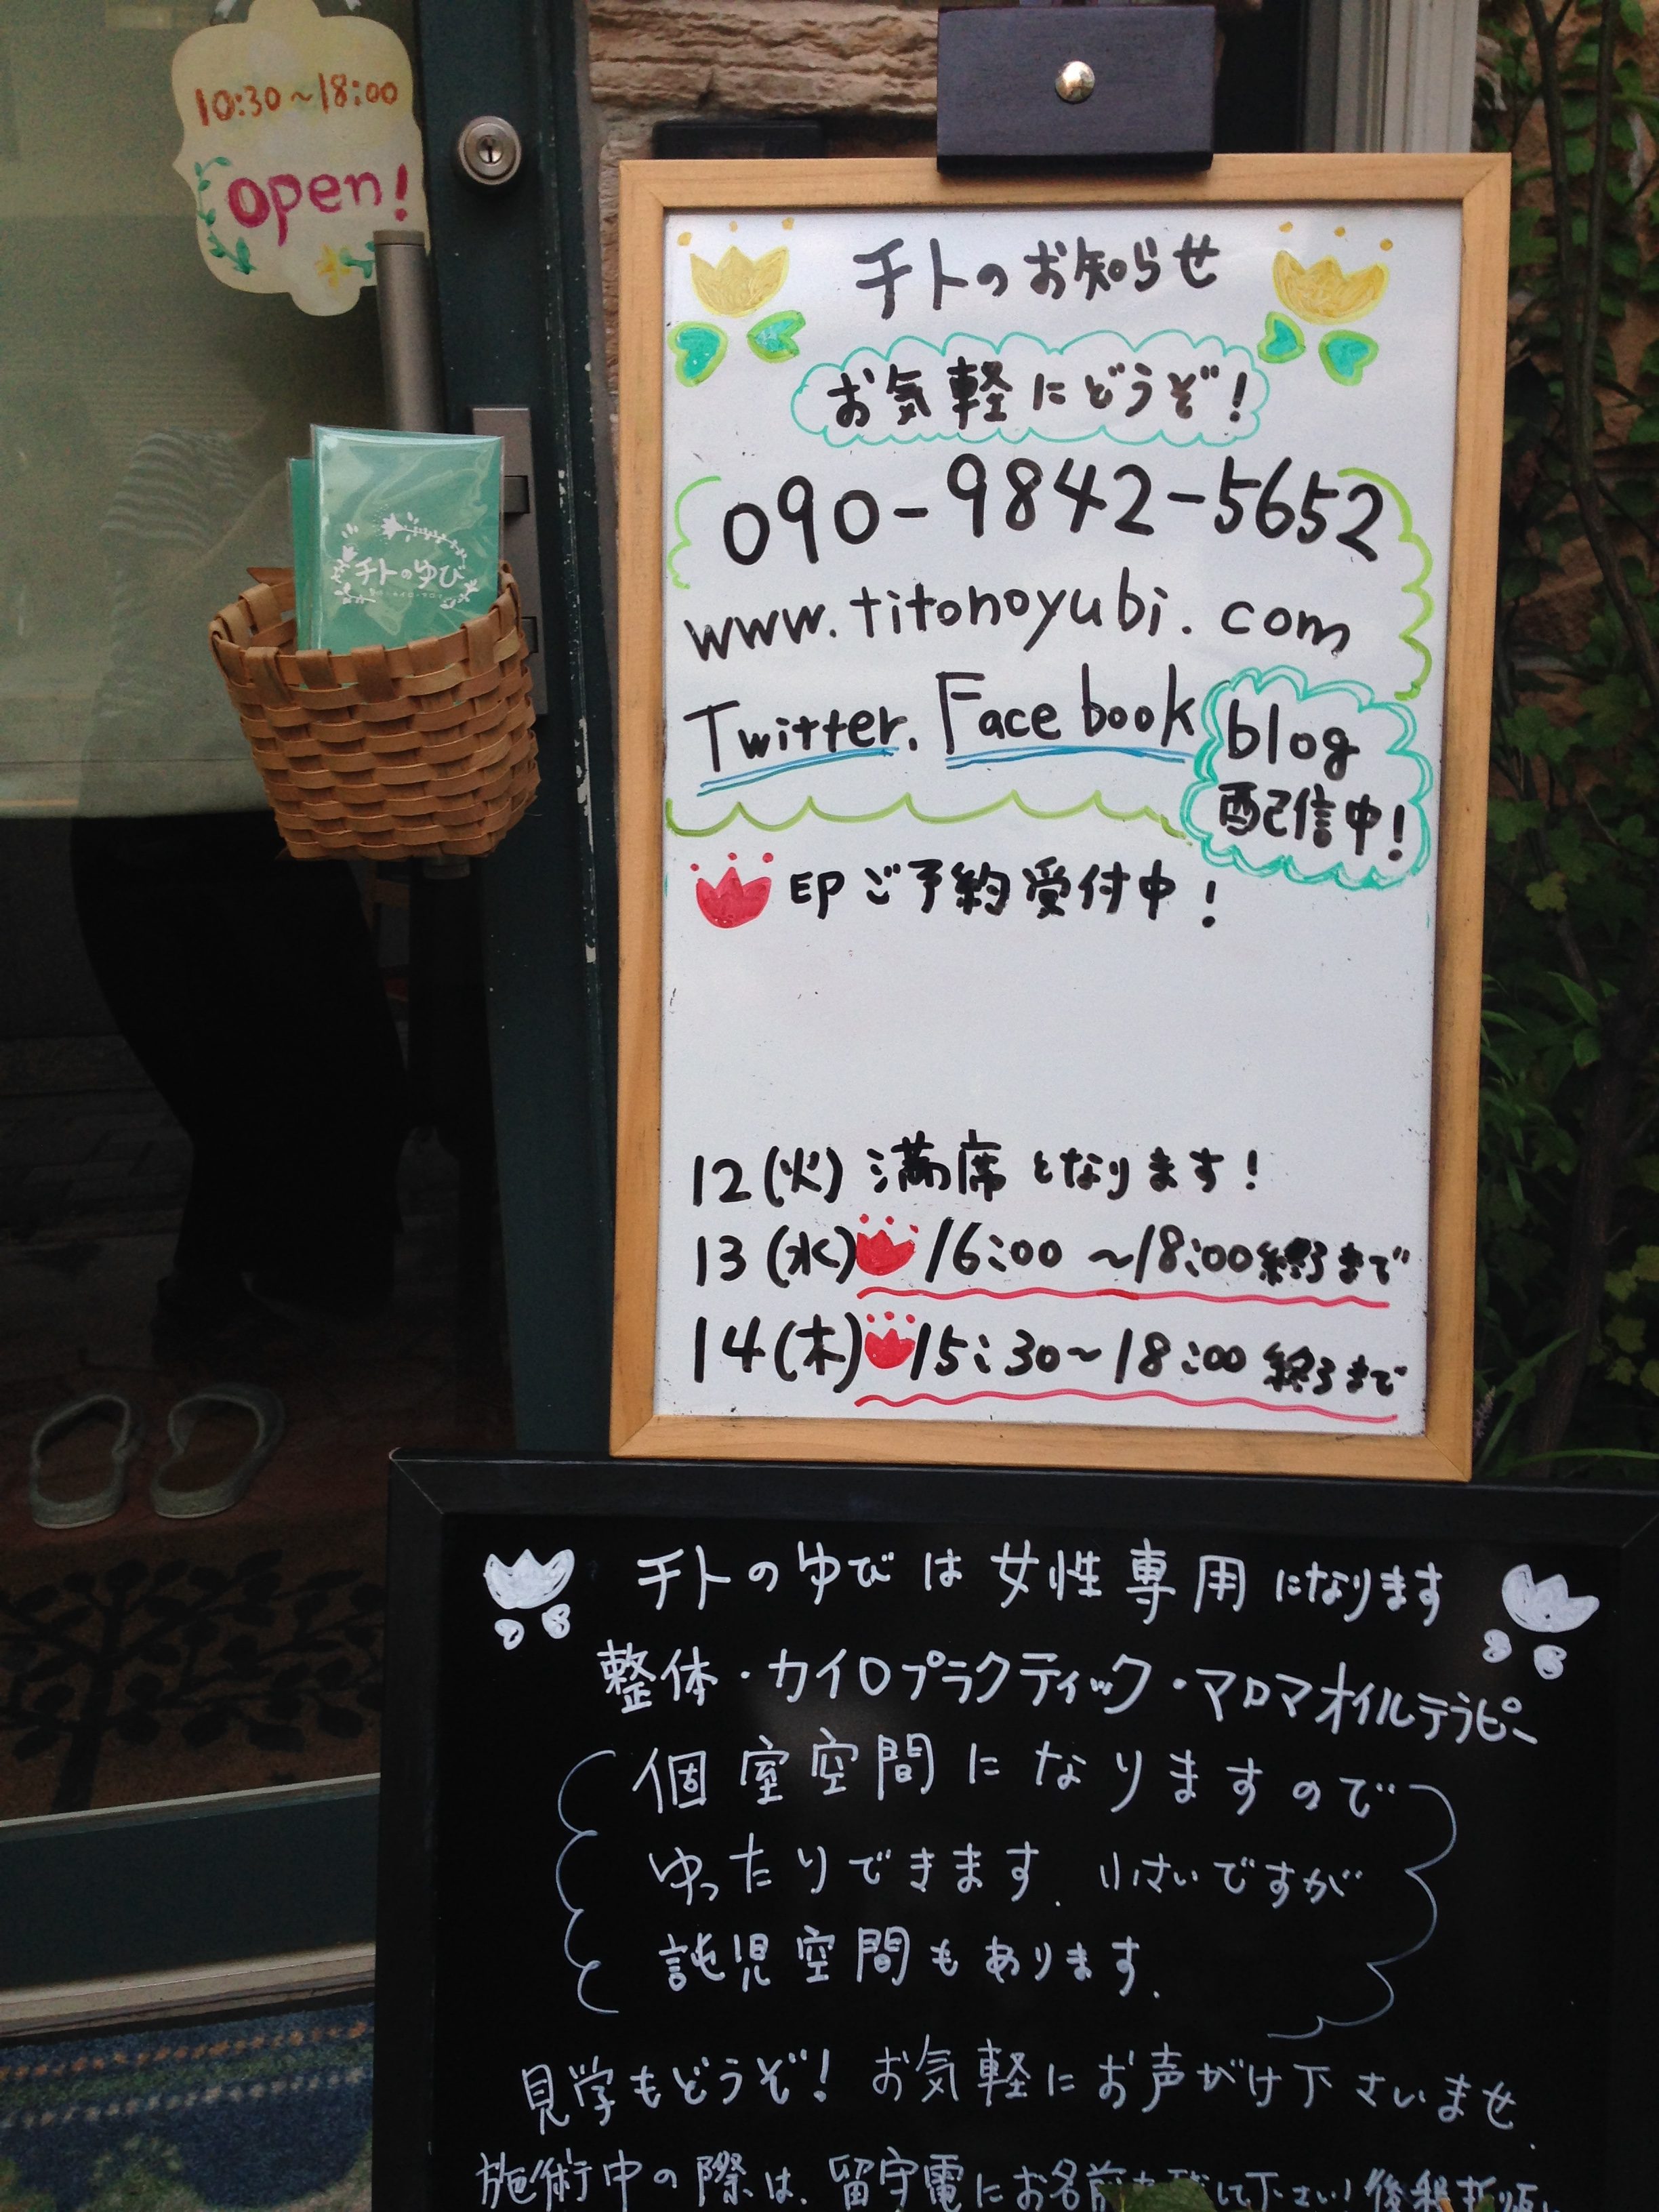 10:30~18:00
open!
チトのゆび
チトのお知らせ
お気軽にどうぞ!
090-9842-5652
www.titonoyubi.com
Twitter. Facebook
blog
配信中!
EPご予約受付中!
12(火)満席となります!
13(水)16:00~18:00終了まで
14(木)15:30~18:00終了まで
チトのゆびは女性専用になります
整体・カイロプラクティック・アロマオイルテラピー
個室空間になりますので
ゆったりできます.小さいですが
託児空間もあります.
見学もどうぞ!お気軽にお声がけ下さいませ.
施術中の際は、留守電にお名前を残して下さい!後程折り返